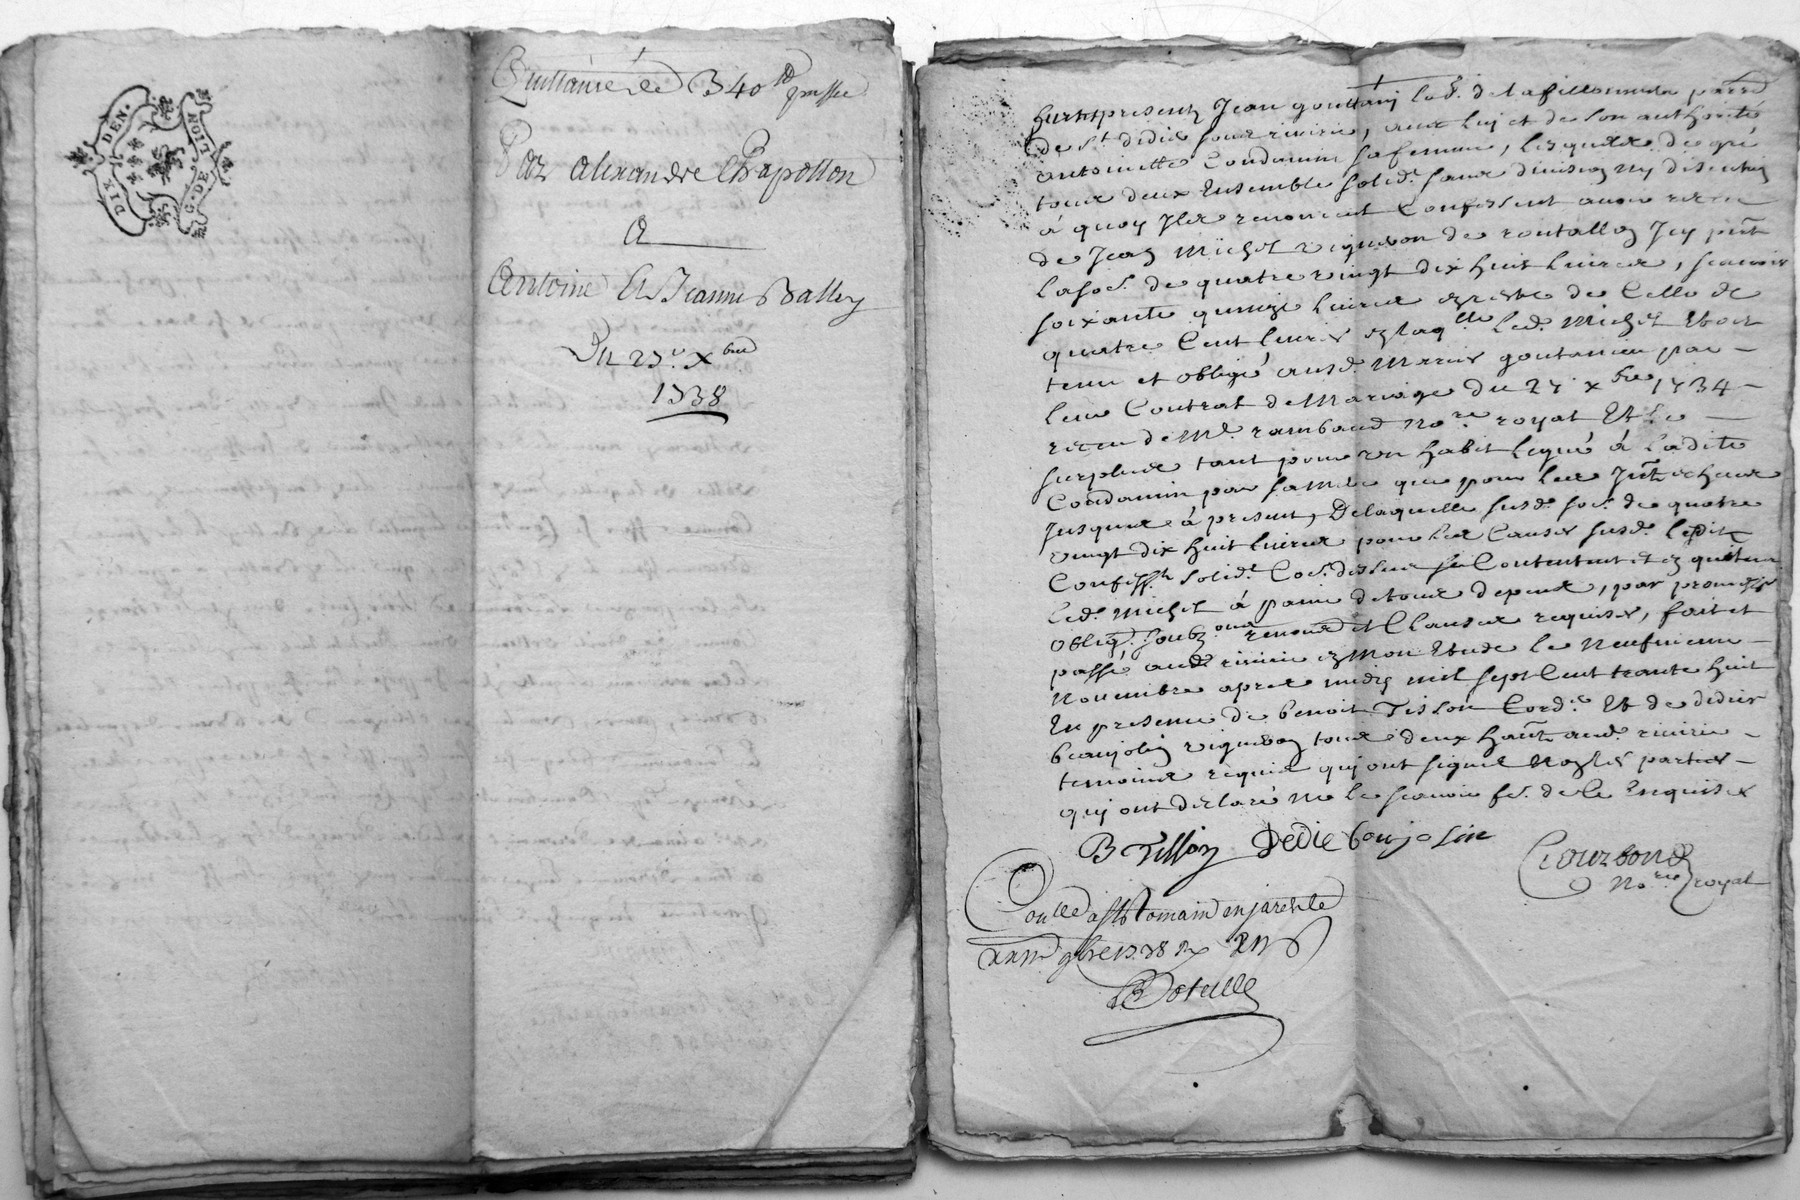 DIX DEN.
G. DE LION
Quittance de 340 ₶ passée
Par alexandre Chapotton
A
Antoine Et Jeanne Balley
Du 23e xbre
1738
furent presents Jean goultany lab.r de la fillonniere parr.e
de st didier sous riviere, avec luy et de son authorité
antoinette Condamin sa femme, lesquels de gré
tous deux Ensemble solid.t sans division ny discution
à quoy Ils renoncent Confessent avoir receu
de Jean Michel vigneron de Icy pnt
la so.e de quatre vingt dix huit livres, scavoir
soixante quinze livres reste de Celle de
quatre Cent livres en laq.lle led. Michel Etoit
tenu et obligé ausd. Mariés par
leur Contrat de Mariage du 27 xbre 1734
receu de Me. rambaud No.re royal Et le
surplus tant pour un habit legué à Ladite
Condamin par sa Mere que pour les
Jusques à present, De laquelle susd. so.e de quatre
vingt dix huit livres pour les Causes susd. lesdits
Confess.ts solid.t Co.e dessus se Contentent et en quittent
led. Michel à peine de tous depens, par promesses
oblig.ons renon.ons et Clauses requises, fait et
passé aud. riviere en Mon Etude le Neufvieme
Novembre apres midy mil sept Cent trante huit
En presence de benoit Tisson Cord.r Et de didier
beaujolin vigneron tous deux ha.nts aud. riviere
temoins requis qui ont signé Non les parties
qui ont declaré ne le scavoir fe. de Ce Enquises
B Tisson Dedie boujolin
Courbon
No.re royal
Conlle a St Romain en jarest le
9bre 1738 Rx